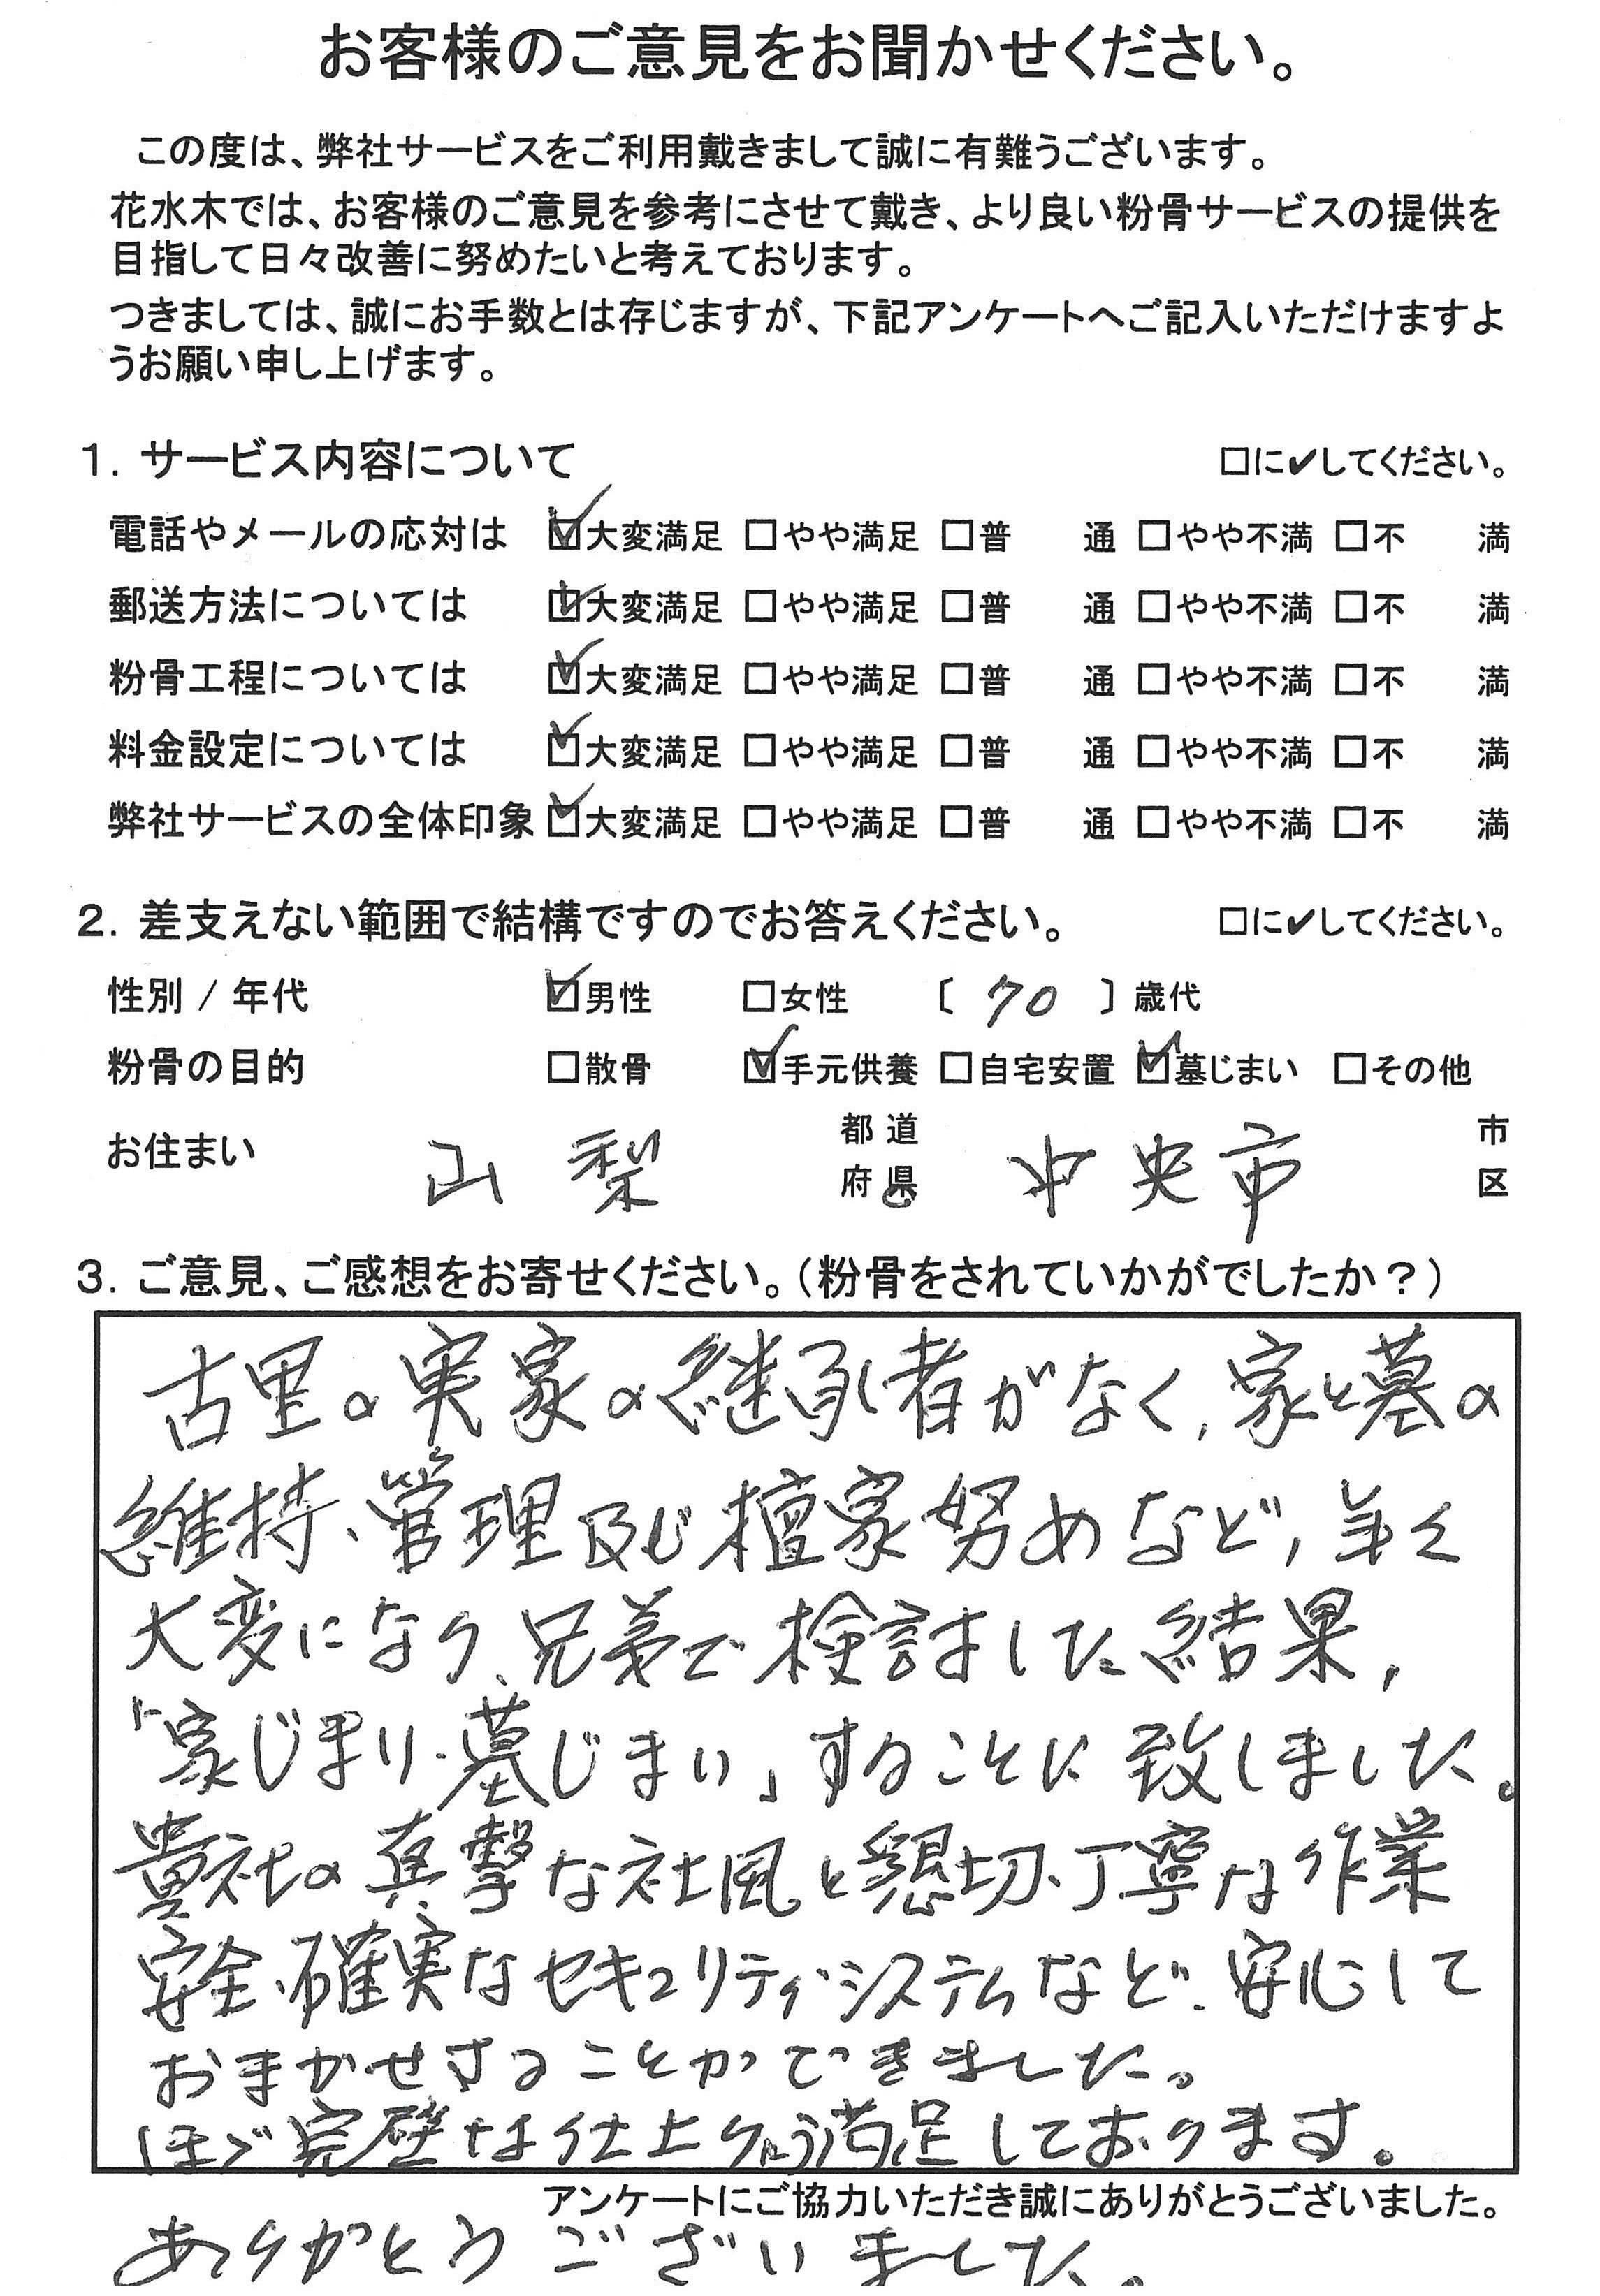 お客様のご意見をお聞かせください。
この度は、弊社サービスをご利用戴きまして誠に有難うございます。
花水木では、お客様のご意見を参考にさせて戴き、より良い粉骨サービスの提供を
目指して日々改善に努めたいと考えております。
つきましては、誠にお手数とは存じますが、下記アンケートへご記入いただけますよ
うお願い申し上げます。
1. サービス内容について □に✔してください。
電話やメールの応対は ☑大変満足 □やや満足 □普 通 □やや不満 □不 満
郵送方法については ☑大変満足 □やや満足 □普 通 □やや不満 □不 満
粉骨工程については ☑大変満足 □やや満足 □普 通 □やや不満 □不 満
料金設定については ☑大変満足 □やや満足 □普 通 □やや不満 □不 満
弊社サービスの全体印象 ☑大変満足 □やや満足 □普 通 □やや不満 □不 満
2. 差支えない範囲で結構ですのでお答えください。 □に✔してください。
性別 / 年代 ☑男性 □女性 〔 70 〕歳代
粉骨の目的 □散骨 ☑手元供養 □自宅安置 ☑墓じまい □その他
お住まい 山梨 都道府県 中央市 市区
3. ご意見、ご感想をお寄せください。(粉骨をされていかがでしたか?)
古里の実家の継承者がなく,家と墓の
維持、管理及び檀家努めなど,年々
大変になり、兄弟で検討ました結果,
「家じまり・墓じまい」することに致しました。
貴社の真摯な社風と懇切、丁寧な作業
安全、確実なセキュリティシステムなど、安心して
おまかせすることができました。
ほぼ完璧な仕上り満足しております。
アンケートにご協力いただき誠にありがとうございました。
ありがとうございました。